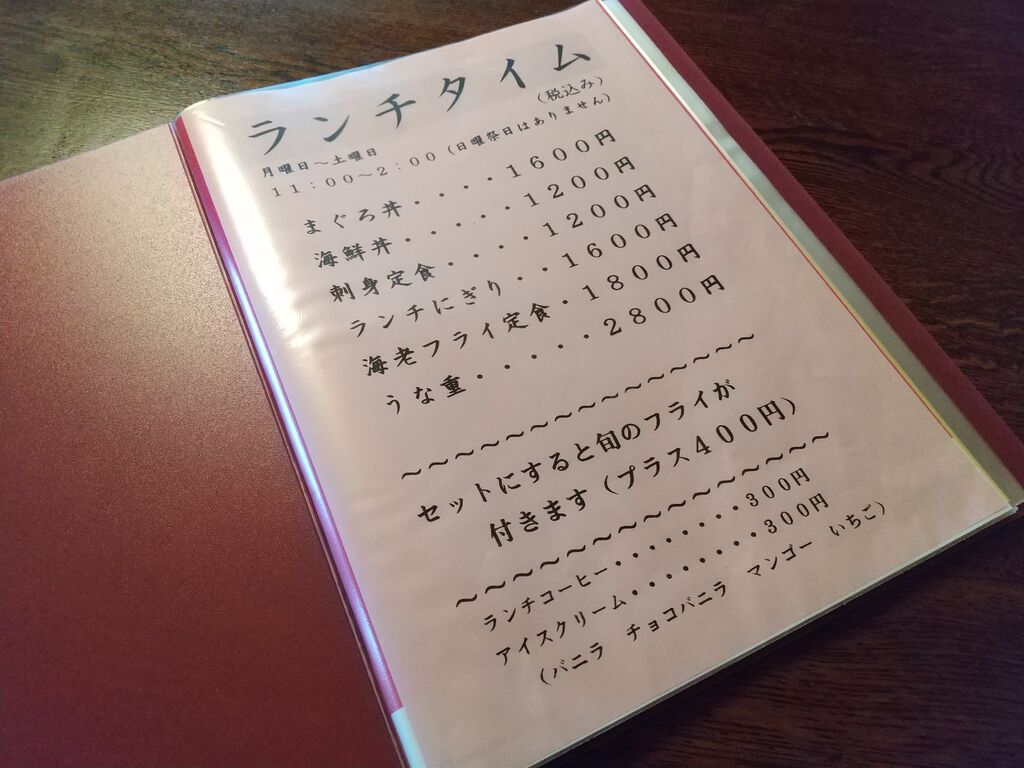 ランチタイム
(税込み)
月曜日～土曜日
11:00～2:00(日曜祭日はありません)
まぐろ丼・・・・1600円
海鮮丼・・・・・・1200円
刺身定食・・・・・1200円
ランチにぎり・・1600円
海老フライ定食・1800円
うな重・・・・・2800円
～～～～～～～～～～～～～～～
セットにすると旬のフライが
付きます(プラス400円)
～～～～～～～～～～～～～～～
ランチコーヒー・・・・・・・300円
アイスクリーム・・・・・・・・300円
(バニラ　チョコバニラ　マンゴー　いちご)